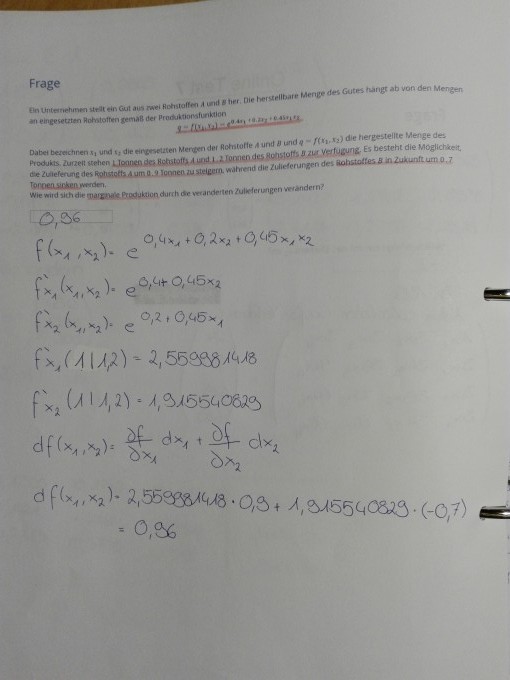 Frage
Ein Unternehmen stellt ein Gut aus zwei Rohstoffen A und B her. Die herstellbare Menge des Gutes hängt ab von den Mengen
an eingesetzten Rohstoffen gemäß der Produktionsfunktion
q = f(x₁, x₂) = e^0.4x₁ + 0.2x₂ + 0.45x₁x₂.
Dabei bezeichnen x₁ und x₂ die eingesetzten Mengen der Rohstoffe A und B und q = f(x₁, x₂) die hergestellte Menge des
Produkts. Zurzeit stehen 1 Tonnen des Rohstoffs A und 1.2 Tonnen des Rohstoffs B zur Verfügung. Es besteht die Möglichkeit,
die Zulieferung des Rohstoffs A um 0.9 Tonnen zu steigern, während die Zulieferungen des Rohstoffes B in Zukunft um 0.7
Tonnen sinken werden.
Wie wird sich die marginale Produktion durch die veränderten Zulieferungen verändern?
0,96
f(x₁,x₂)= e^0,4x₁+0,2x₂+0,45x₁x₂
f`x₁(x₁,x₂)= e^0,4+0,45x₂
f`x₂(x₁,x₂)= e^0,2+0,45x₁
f`x₁(1|1,2) = 2,559981418
f`x₂(1|1,2) = 1,915540829
df(x₁,x₂)= ∂f/∂x₁ dx₁ + ∂f/∂x₂ dx₂
df(x₁,x₂)= 2,559981418·0,9 + 1,915540829·(-0,7)
= 0,96